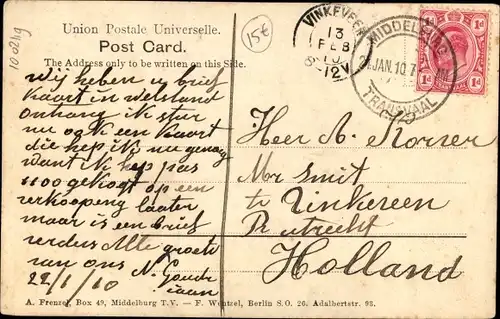 Union Postale Universelle.
Post Card.
The Address only to be written on this Side.
10021g
15€
VINKEVEEN
13
FEB
10
8-12V
MIDDELBURG
JAN. 10
TRANSVAAL
1d 1d
Wij heben u brief
kaart in welstand
onhang ik stur
nu ook een kaart
die hep ik nu genog
want ik hep pas
1100 gekogt op een
verkoopeng laater
maar is een brief
verders Alle groete
van ons N. Goude
22/1/10 iaan
Heer A. Korver
Mr Smit
te Vinkeveen
Pr utrecht
Holland
A. Frenzel, Box 49, Middelburg T.V. — F. Wentzel, Berlin S.O. 26. Adalbertstr. 93.